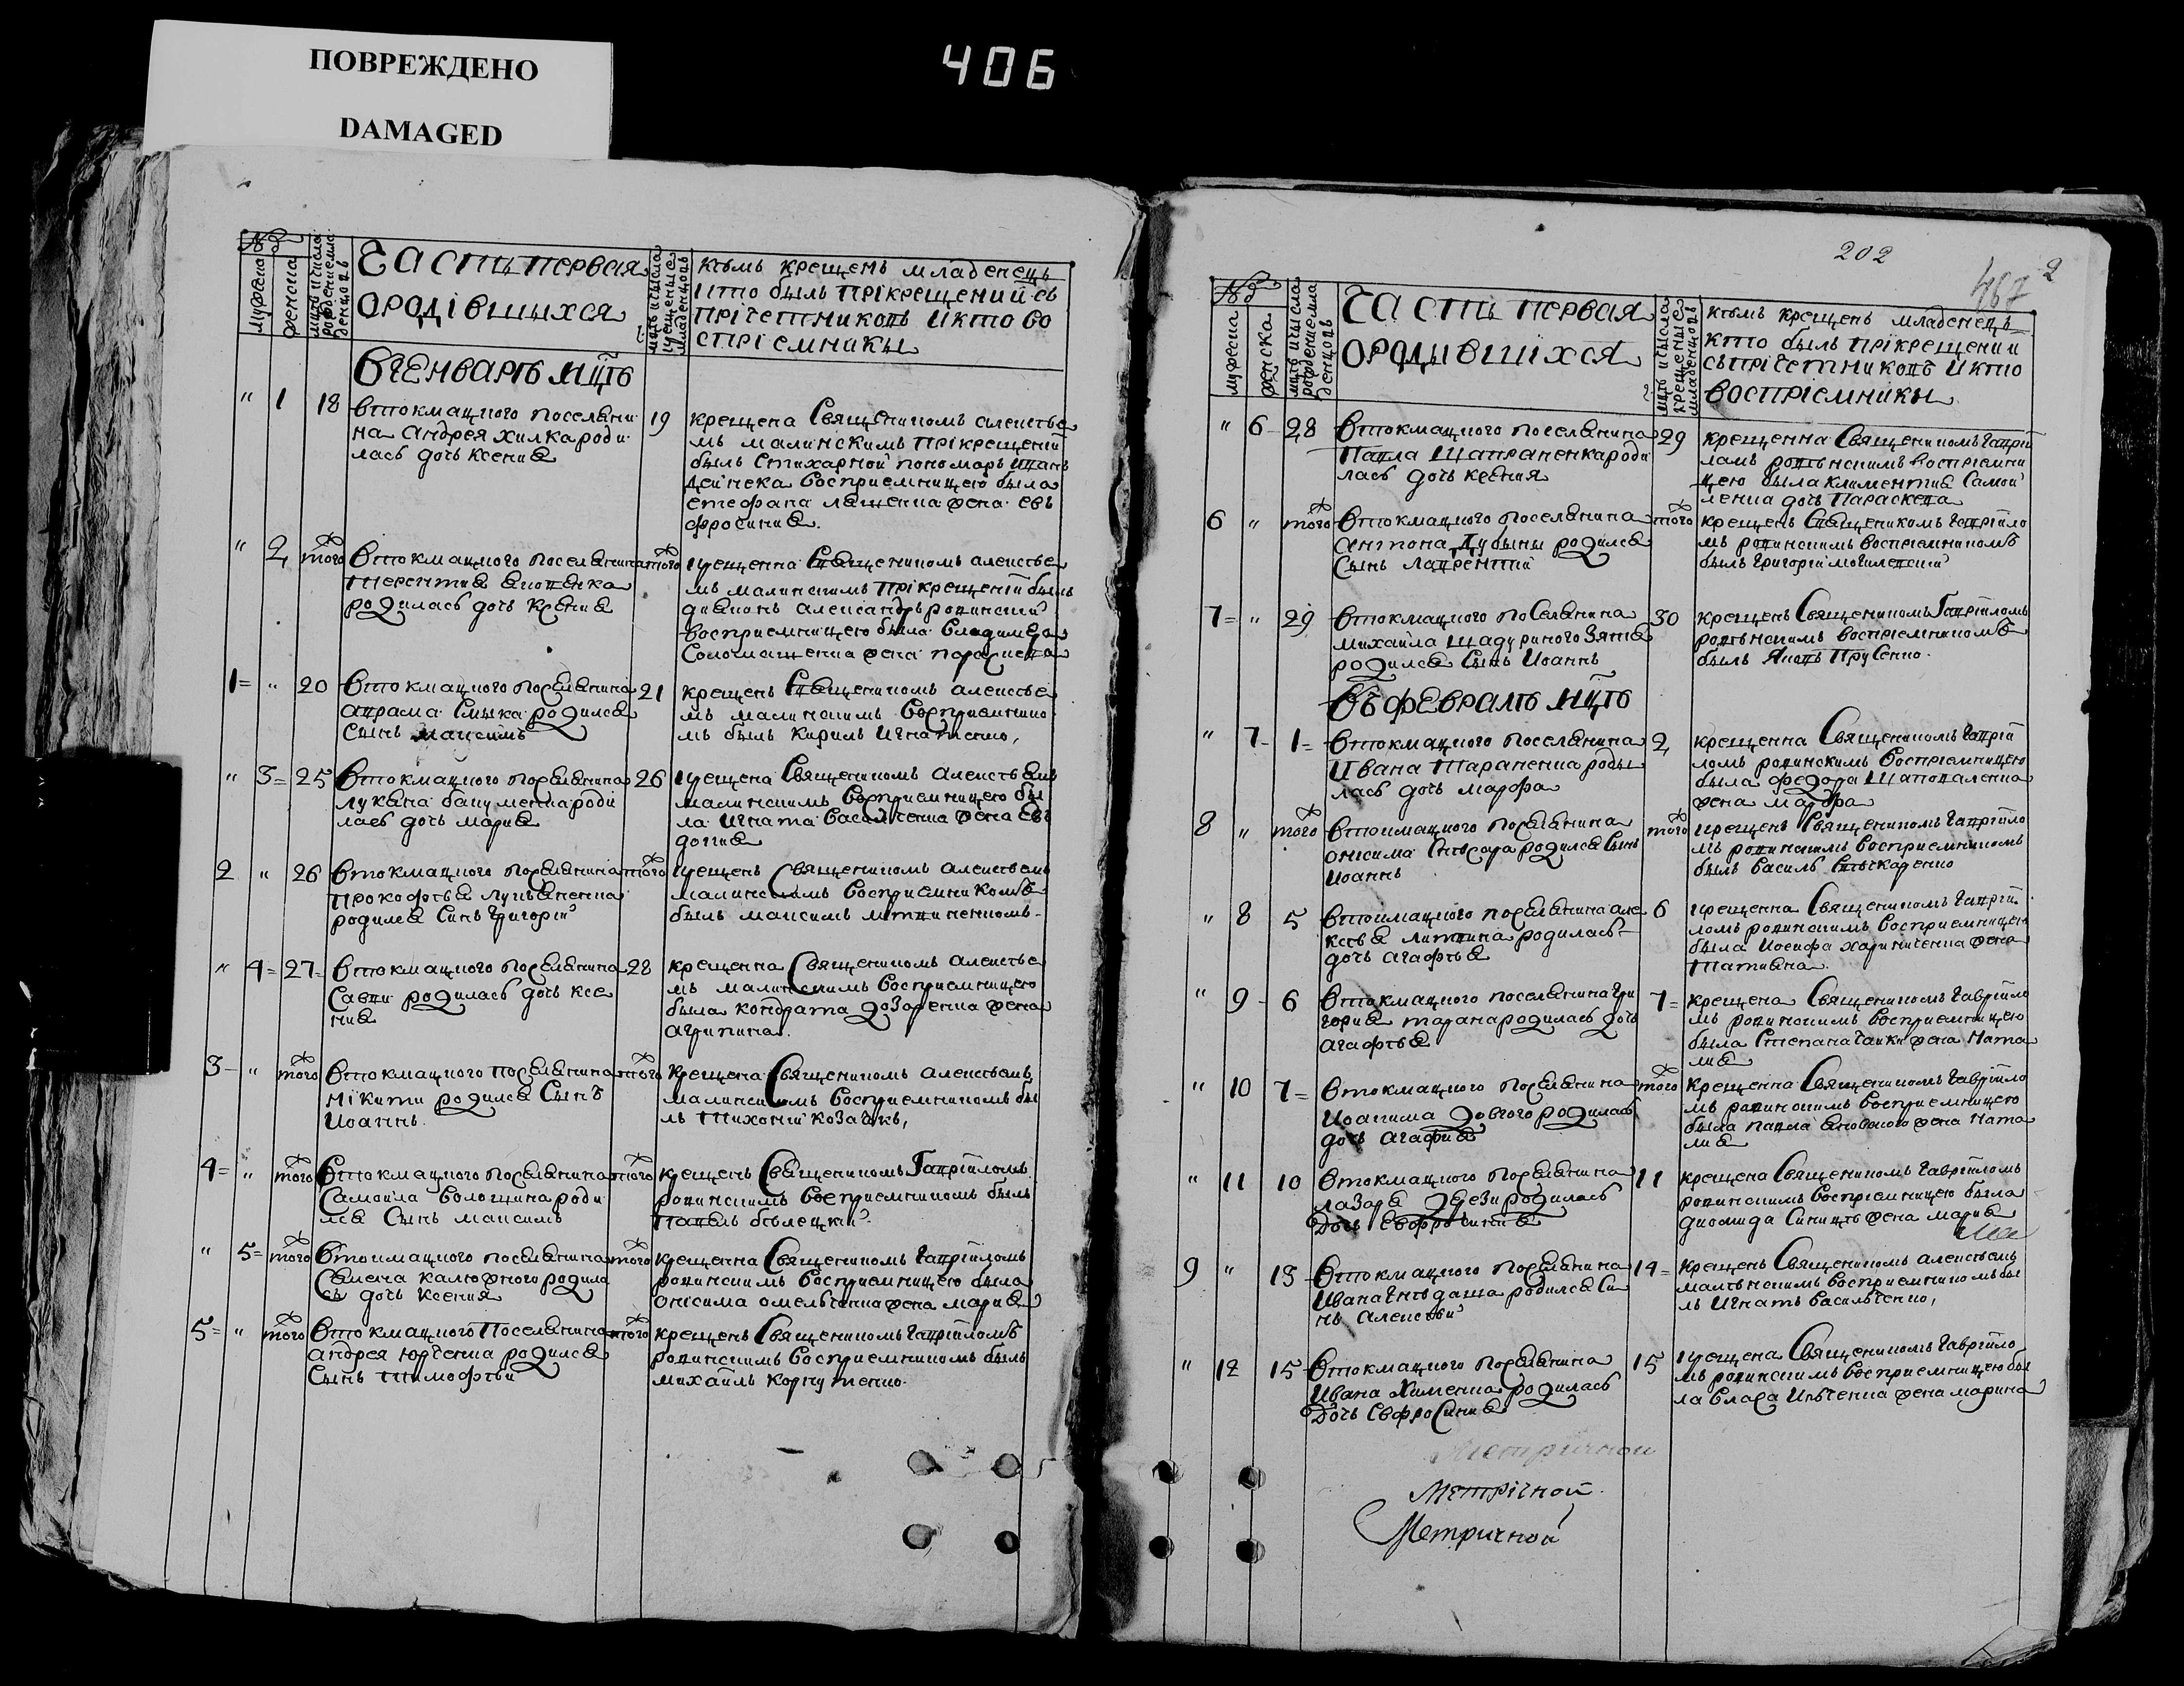 ПОВРЕЖДЕНО
DAMAGED
406
№
мужеска
женска
Часть первая
о родівшихся
кѣмъ крещенъ младенецъ
и кто былъ при крещеній съ
прічетниковъ и кто во
спріемники
Въ Генварѣ мцѣ
" 1 18
Втокмацкого поселяни
на Андрея хилка роди
лась дочь Ксенія
19
крещена Священикомъ алексѣе
мъ малинскимъ при крещеній
былъ Стихарной пономарь
дейнека Восприемницею была
стефана жена евъ
фросинія.
" 2 того
Втокмацкого поселянина
терентия
родилась дочь Ксения
того
крещенна Священикомъ алексѣе
мъ малинскимъ при крещеній былъ
диаконъ александръ ровинскій
восприемницею была
жена параскева
1 = " 20
Втокмацкого поселянина
аврама Смыка родился
Сынъ максимъ
21
крещенъ Священикомъ алексѣе
мъ малинскимъ Восприемнико
мъ былъ Кирилъ Игнатенко,
" 3 = 25
Втокмацкого поселянина
лукяна роди
лась дочь мария
26
крещена Священикомъ алексѣемъ
малинскимъ Восприемницею бы
ла Игната Василченка жена Ев
докия
2 " 26
Втокмацкого поселянина
прокофъя
родился Синъ григорій
того
крещенъ Священикомъ алексѣемъ
малинскимъ Восприемникомъ
былъ максимъ
" 4 = 27 =
Втокмацкого поселянина
Савви родилась дочь ксе
ния
28
крещенна Священикомъ алексѣе
мъ малинскимъ Восприемницею
была кондрата жена
агрипина.
3 - " того
Втокмацкого поселянина
нікити родился Сынъ
Иоаннъ.
того
крещена Священикомъ алексѣемъ
малинскимъ Восприемникомъ бы
лъ тихоній козачокъ,
4 = " того
Втокмацкого поселянина
Самойла Волошина роди
лся Сынъ максимъ
того
крещенъ Священикомъ Гавріиломъ
ровинскимъ Восприемникомъ былъ
Павелъ бѣлецкій.
" 5 = того
Втокмацкого поселянина
Семена калюжного родила
сь дочь Ксения
того
крещенна Священикомъ Гавріиломъ
ровинскимъ Восприемницею была
онісима омельченка жена мария
5 = " того
Втокмацкого Поселянина
андрея юрченка родился
Сынъ тимофѣй
того
крещенъ Священикомъ Гавріиломъ
ровинскимъ Восприемникомъ былъ
михаилъ
202
467
2
№
мужеска
женска
Часть первая
о родившіхся
кѣмъ крещенъ младенецъ
кто былъ при крещении
съ прічетниковъ и кто
воспріемники
" 6 - 28
Втокмацкого поселянина
Павла Шапраненка роди
лась дочь ксения
29
крещенна Священикомъ Гаврій
ломъ ровѣнскимъ Воспріемни
цею была климентия Самой
ленка дочь Параскева
6 " того
Втокмацкого поселянина
антона Дубыны родился
Сынъ лаврентій
того
крещенъ Священикомъ Гавріило
мъ ровинскимъ воспріемникомъ
былъ григорій могилевский
7 = " 29
Втокмацкого поСелянина
михайла зятя
родился Сынъ Иоаннъ
30
крещенъ Священикомъ Гавріиломъ
ровѣнскимъ воспріемникомъ
былъ Яковъ Прусенко.
Въ Февралѣ мцѣ
" 7 - 1 =
Втокмацкого поселянина
Ивана тараненка роды
лась дочь марфа
2
крещенна Священикомъ Гаврій
ломъ ровинскимъ Воспріемницею
была федора Шаповаленка
жена марфа
8 " того
Втокмацкого поселянина
онисима родился Сынъ
Иоаннъ
того
крещенъ Священикомъ Гавріило
мъ ровинскимъ Восприемникомъ
былъ василь
" 8 5
Втокмацкого поселянина але
ксѣя литвина родилась
дочь агафья
6
крещенна Священикомъ Гаврій
ломъ ровинскимъ Восприемницею
была Иосифа жена
татияна.
" 9 - 6
Втокмацкого поселянина гри
гория тарана родилась дочь
агафья
7 =
крещена Священикомъ Гавріило
мъ ровинскимъ Восприемницею
была Степана Чайки жена Ната
лия
" 10 7 =
Втокмацкого поселянина
Иоакима довгого родилась
дочь агафия
того
крещенна Священикомъ Гавріило
мъ ровинскимъ Восприемницею
была павла жена Ната
лия
" 11 10
Втокмацкого поселянина
лазаря родилась
Дочь Евфросиния
11
крещена Священикомъ Гавріиломъ
ровинскимъ Восприемницею была
диомида Синицѣ жена мария
9 " 13
Втокмацкого поселянина
Ивана Гнѣдаша родился Си
нъ алексѣй
14 =
крещенъ Священикомъ алексѣемъ
малѣнскимъ Восприемникомъ бы
лъ Игнатъ Василченко,
" 12 15
Втокмацкого поселянина
Ивана Хименка родилась
Дочь Евфросиния
15
крещена Священикомъ Гавріило
мъ ровинскимъ Восприемницею бы
ла Власа Ивченка жена марина
Метричной
Метрічной
Метричной